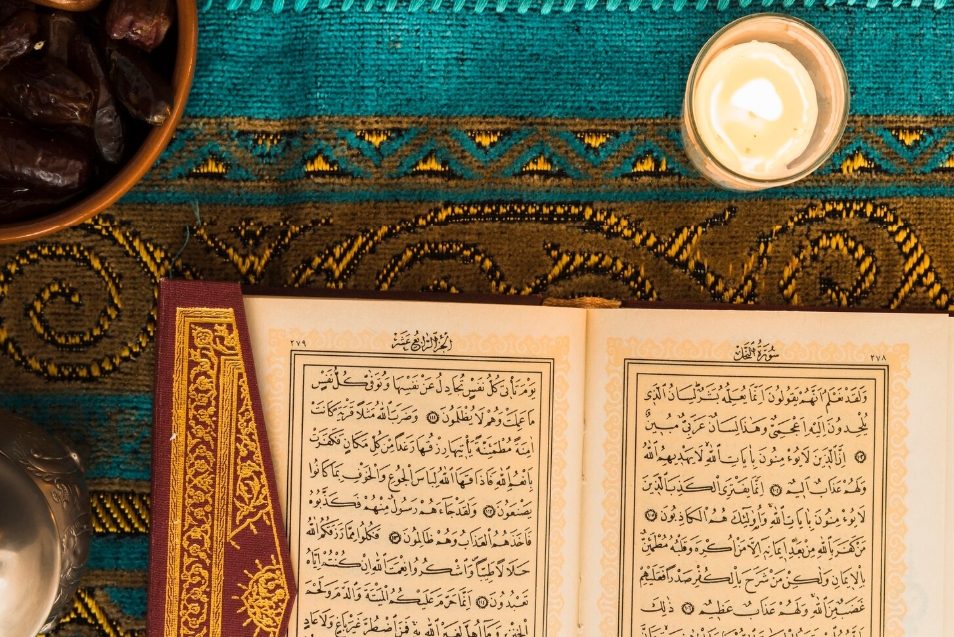 سُورَةُ النَّحْلِ ٢٧٨
وَلَقَدْ نَعْلَمُ اَنَّهُمْ يَقُولُونَ اِنَّمَا يُعَلِّمُهُ بَشَرٌ لِسَانُ الَّذِي
يُلْحِدُونَ اِلَيْهِ اَعْجَمِيٌّ وَهٰذَا لِسَانٌ عَرَبِيٌّ مُبِينٌ
﴿١٠٣﴾ اِنَّ الَّذِينَ لَا يُؤْمِنُونَ بِاٰيَاتِ اللّٰهِ لَا يَهْدِيهِمُ اللّٰهُ
وَلَهُمْ عَذَابٌ اَلِيمٌ ﴿١٠٤﴾ اِنَّمَا يَفْتَرِي الْكَذِبَ الَّذِينَ
لَا يُؤْمِنُونَ بِاٰيَاتِ اللّٰهِ وَاُولٰئِكَ هُمُ الْكَاذِبُونَ ﴿١٠٥﴾
مَنْ كَفَرَ بِاللّٰهِ مِنْ بَعْدِ اِيمَانِهِ اِلَّا مَنْ اُكْرِهَ وَقَلْبُهُ مُطْمَئِنٌّ
بِالْاِيمَانِ وَلٰكِنْ مَنْ شَرَحَ بِالْكُفْرِ صَدْرًا فَعَلَيْهِمْ
غَضَبٌ مِنَ اللّٰهِ وَلَهُمْ عَذَابٌ عَظِيمٌ ﴿١٠٦﴾ ذٰلِكَ
اَلْجُزْءُ الرَّابِعُ عَشَرَ ٢٧٩
يَوْمَ تَأْتِي كُلُّ نَفْسٍ تُجَادِلُ عَنْ نَفْسِهَا وَتُوَفّٰى كُلُّ نَفْسٍ
مَا عَمِلَتْ وَهُمْ لَا يُظْلَمُونَ ﴿١١١﴾ وَضَرَبَ اللّٰهُ مَثَلًا قَرْيَةً كَانَتْ
اٰمِنَةً مُطْمَئِنَّةً يَأْتِيهَا رِزْقُهَا رَغَدًا مِنْ كُلِّ مَكَانٍ فَكَفَرَتْ
بِاَنْعُمِ اللّٰهِ فَاَذَاقَهَا اللّٰهُ لِبَاسَ الْجُوعِ وَالْخَوْفِ بِمَا كَانُوا
يَصْنَعُونَ ﴿١١٢﴾ وَلَقَدْ جَاءَهُمْ رَسُولٌ مِنْهُمْ فَكَذَّبُوهُ
فَاَخَذَهُمُ الْعَذَابُ وَهُمْ ظَالِمُونَ ﴿١١٣﴾ فَكُلُوا مِمَّا رَزَقَكُمُ اللّٰهُ
حَلَالًا طَيِّبًا وَاشْكُرُوا نِعْمَتَ اللّٰهِ اِنْ كُنْتُمْ اِيَّاهُ
تَعْبُدُونَ ﴿١١٤﴾ اِنَّمَا حَرَّمَ عَلَيْكُمُ الْمَيْتَةَ وَالدَّمَ وَلَحْمَ
الْخِنْزِيرِ وَمَا اُهِلَّ لِغَيْرِ اللّٰهِ بِهِ فَمَنِ اضْطُرَّ غَيْرَ بَاغٍ وَلَا عَادٍ